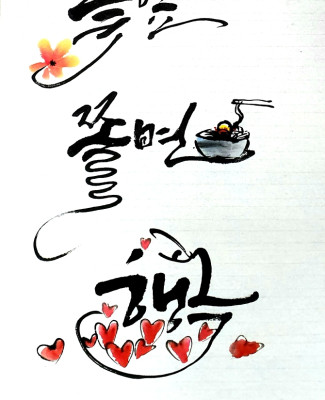 쫄면
행복